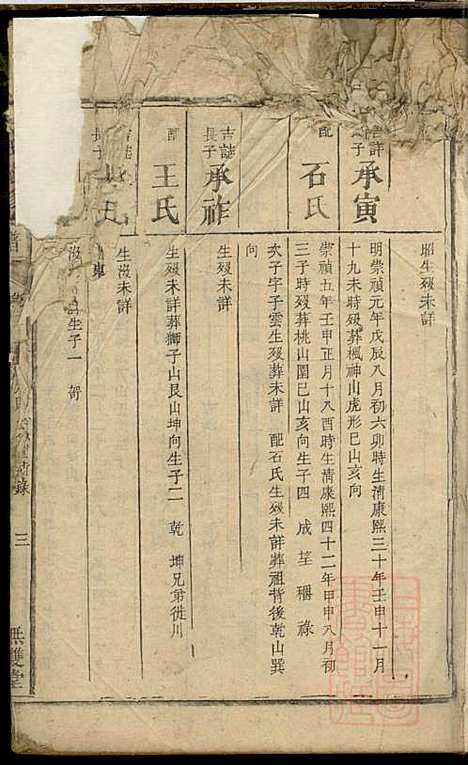 昭生歿未詳
吉詳
子
承寅
明崇禎元年戊辰八月初六卯時生清康熙三十年壬申十一月
十九未時歿葬楓神山虎形巳山亥向
配
石氏
崇禎五年壬申正月十八酉時生清康熙四十二年甲申八月初
三子時歿葬桃山園巳山亥向生子四 成 望 穤 祿
次子字子雲生歿葬未詳 配石氏生歿未詳葬祖背後乾山巽
向
吉誌
長子
承祚
生歿未詳
配
王氏
生歿未詳葬獅子山艮山坤向生子二 乾 坤兄弟徙川
吉誌
長子
生沒未詳
氏
沒
生子一
錄
三
無雙堂